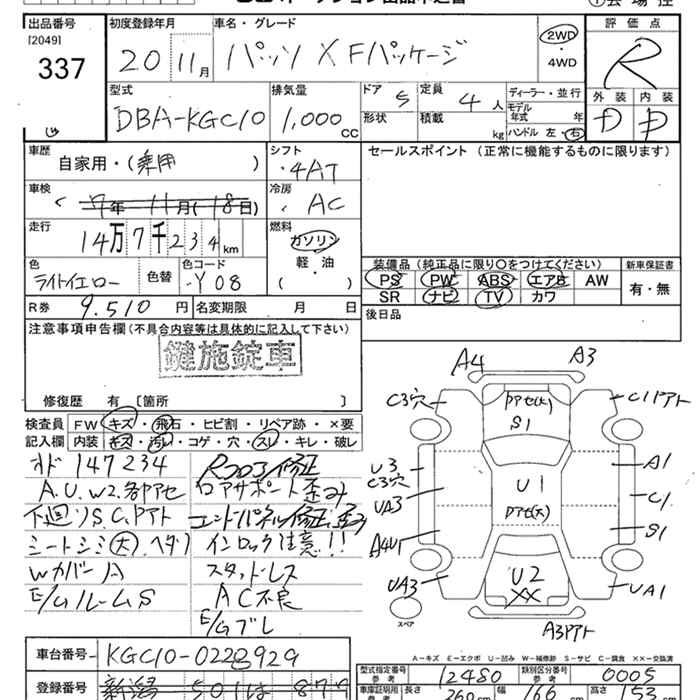 出品番号 初度登録年月 車名・グレード 評価点
[2049]
337 20 11月 パッソ X Fパッケージ 2WD・4WD R
型式 排気量 ドア 5 定員 4人 ディーラー・並行 外装 内装
DBA-KGC10 1,000cc 形状 積載 kg モデル年式 年 ハンドル 左・右 D D
車歴 シフト セールスポイント (正常に機能するものに限ります)
自家用・(乗用) 4AT
車検 冷房
7年11月(18日) AC
走行 燃料
14万7千234km ガソリン
軽・油
色 色替 色コード 装備品 (純正品に限り○をつけてください) 新車保証書
ライトイエロー Y08 ( ) PS PW ABS エアB AW 有・無
SR ナビ TV カワ
R券 9,510円 名変期限 月 日 後日品
注意事項申告欄(不具合内容等は具体的に記入して下さい)
鍵施錠車
修復歴 有 [箇所 ]
検査員 FW キズ・飛石・ヒビ割・リペア跡・×要
記入欄 内装 キズ・汚レ・コゲ・穴・スレ・キレ・破レ
オド 147234 Rコアロ修正
A.U.W2.各部アセ ロアサポート歪み
下廻リS.C.Pアト エンドパネル修正、歪み
シートシミ(大).ヘタリ インロック注意!!
Wカバー A スタッドレス
E/GルームS AC不良
E/Gブレ
A4 A3
C3穴 Pアセ(大) C1Pアト
S1
U3 A1
C3穴 U1 C1
UA3 Pアセ(大)
A4U1 S1
UA3 U2 UA1
XX
スペア A3Pアト
A-キズ E-エクボ U-凹み W-補修跡 S-サビ C-腐食 XX-交換済
車台番号 KGC10-0228929
型式指定番号 参考 12480 類別区分番号 参考 0005
登録番号 新潟 501 は 879
車庫証明用 参考 長さ 360cm 幅 166cm 高さ 153cm